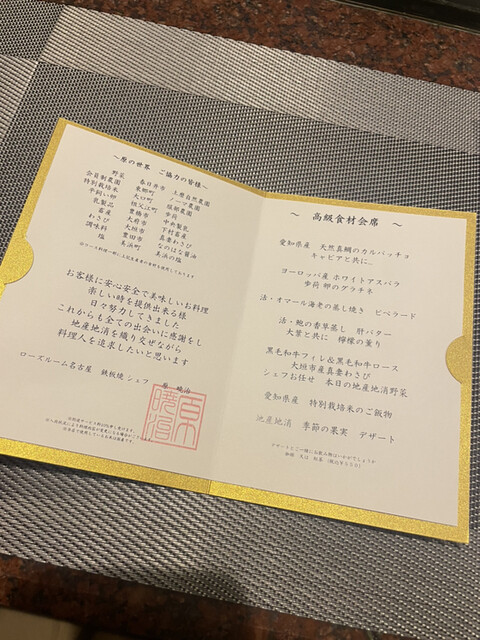 ～原の世界　ご協力の皆様～
野菜　春日井市　上原自然農園
会員制農園　東郷町　ノーマ農園
特別栽培米　大口町　服部農園
平飼い卵　祖父江町　歩荷
乳製品　豊橋市　中央製乳
畜産　大府市　下村畜産
わさび　大垣市　真妻わさび
調味料　豊田市　なのはな醤油
塩　美浜町　美浜の塩
お客様に安心安全で美味しいお料理
楽しい時を提供出来る様
日々努力してきました
これからも全ての出会いに感謝をし
地産地消を織り交ぜながら
料理人を追求したいと思います
ローズルーム名古屋　鉄板焼 シェフ　原
～　高級食材会席　～
愛知県産　天然真鯛のカルパッチョ
キャビアと共に、
ヨーロッパ産 ホワイトアスパラ
歩荷 卵のグラチネ
活・オマール海老の蒸し焼き　ピペラード
活・鮑の香草蒸し　肝バター
大葉と共に　檸檬の薫り
黒毛和牛フィレ＆黒毛和牛ロース
大垣市産真妻わさび
シェフお任せ　本日の地産地消野菜
愛知県産　特別栽培米のご飯物
地産地消　季節の果実　デザート
デザートとご一緒にお飲み物はいかがでしょうか
珈琲　又は　紅茶